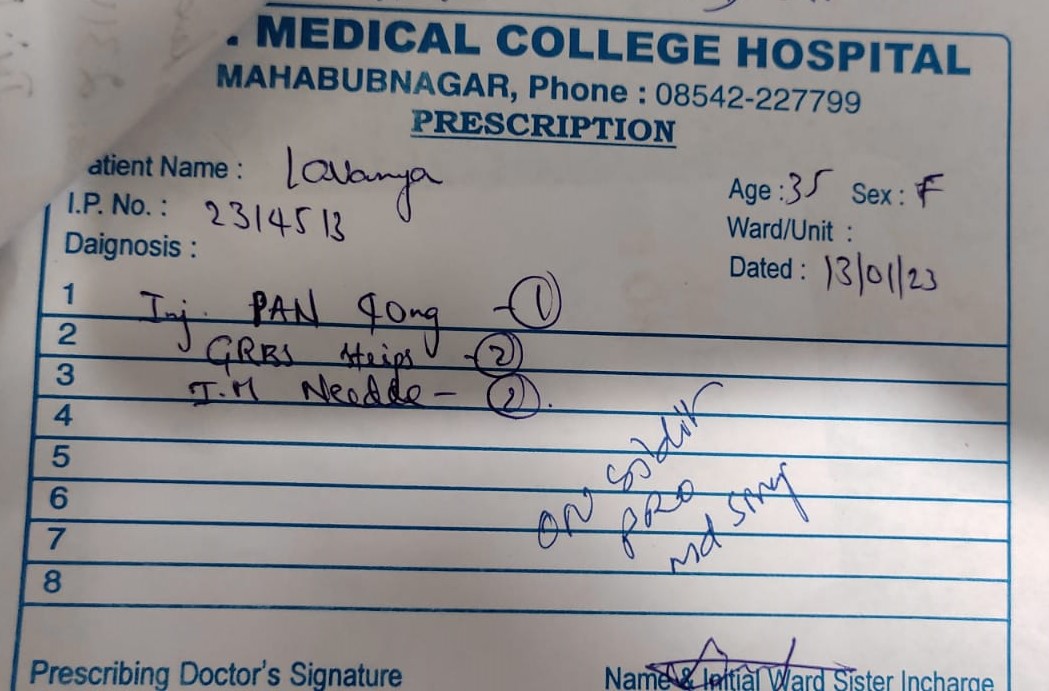 . MEDICAL COLLEGE HOSPITAL
MAHABUBNAGAR, Phone : 08542-227799
PRESCRIPTION
atient Name : Lavanya
Age : 35 Sex : F
I.P. No. : 2314513
Ward/Unit :
Daignosis :
Dated : 13/01/23
1 Inj. PAN 40mg - 1
2 GRBS strips - 2
3 I.M Needle - 2.
4
5
6
7
8
ON
PRO
md
Prescribing Doctor's Signature
Name & Initial Ward Sister Incharge